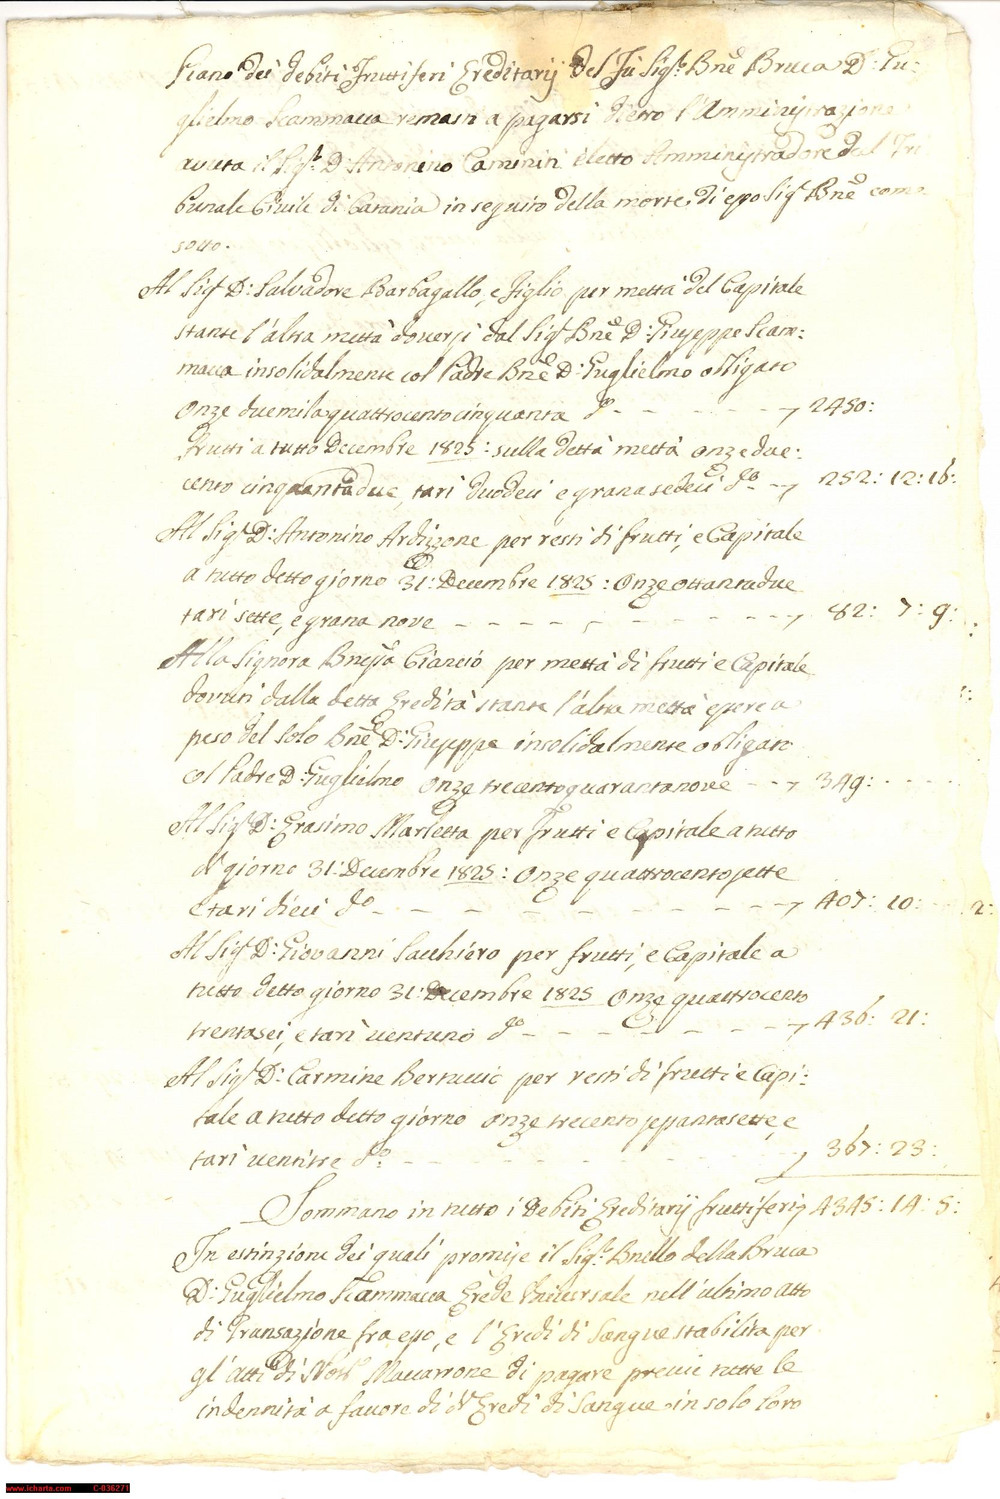 Piano dei debiti Fruttiferi Ereditarij del Fù Sigr. Bne Bruca D: Gu:
glielmo Scammacca remasti a pagarsi dietro l'Amministrazione
avuta il Sigr. D: Antonino Caminiti eletto Amministradore dal Tri
bunale Civile di Catania in seguito della morte di esso Sigr. Bne come
sotto.
Al Sigr D: Salvadore Barbagallo, e figlio per mettà del Capitale
stante l'altra mettà doversi dal Sigr Bne D: Giuseppe Scam:
macca insolidalmente col Padre Bne D: Guglielmo obligato
Onze duemilaquattrocentocinquanta do - - - - - 2450:
Frutti a tutto Decembre 1825: sulla detta mettà onze due:
cento cinquantadue, tarì duodeci e grana sedeci do - 252: 12: 16:
Al Sigr D: Antonino Ardizzone per resti di frutti, e Capitale
a tutto detto giorno 31: Decembre 1825: Onze ottantadue
tarì sette, e grana nove - - - - - - - - - - 82: 7: 9:
Alla Signora Bnessa Ciancio per mettà di frutti e Capitale
dovuti dalla detta Eredità stante l'altra mettà essere a
peso del solo Bne D: Giuseppe insolidalmente obligato
col Padre D: Guglielmo Onze trecentoquarantanove - - 349: - - - -
Al Sigr D: Erasimo Marletta per Frutti e Capitale a tutto
do giorno 31: Decembre 1825: Onze quattrocentosette
e tarì dieci do - - - - - - - - - - 407: 10: - - 2:
Al Sigr D: Giovanni Sacchiero per frutti, e Capitale a
tutto detto giorno 31: Decembre 1825 Onze quattrocento
trentasei, e tarì ventuno do - - - - - - - 436: 21:
Al Sigr D: Carmine Bertuccio per resti di frutti e Capi:
tale a tutto detto giorno onze trecento sessantasette, e
tarì ventitre do - - - - - - - - 367: 23:
Sommano in tutto i Debiti Ereditarij fruttiferi 4345: 14: 5:
In estinzione dei quali promise il Sigr. Bnello della Bruca
D: Guglielmo Scammacca Erede Universale nell'ultimo atto
di Transazione fra esso, e l'Eredi di Sangue stabilita per
gl'atti di Notr Maccarrone di pagare previe tutte le
indennità a favore di di Eredi di Sangue in solo loro
www.icharta.com C-036271